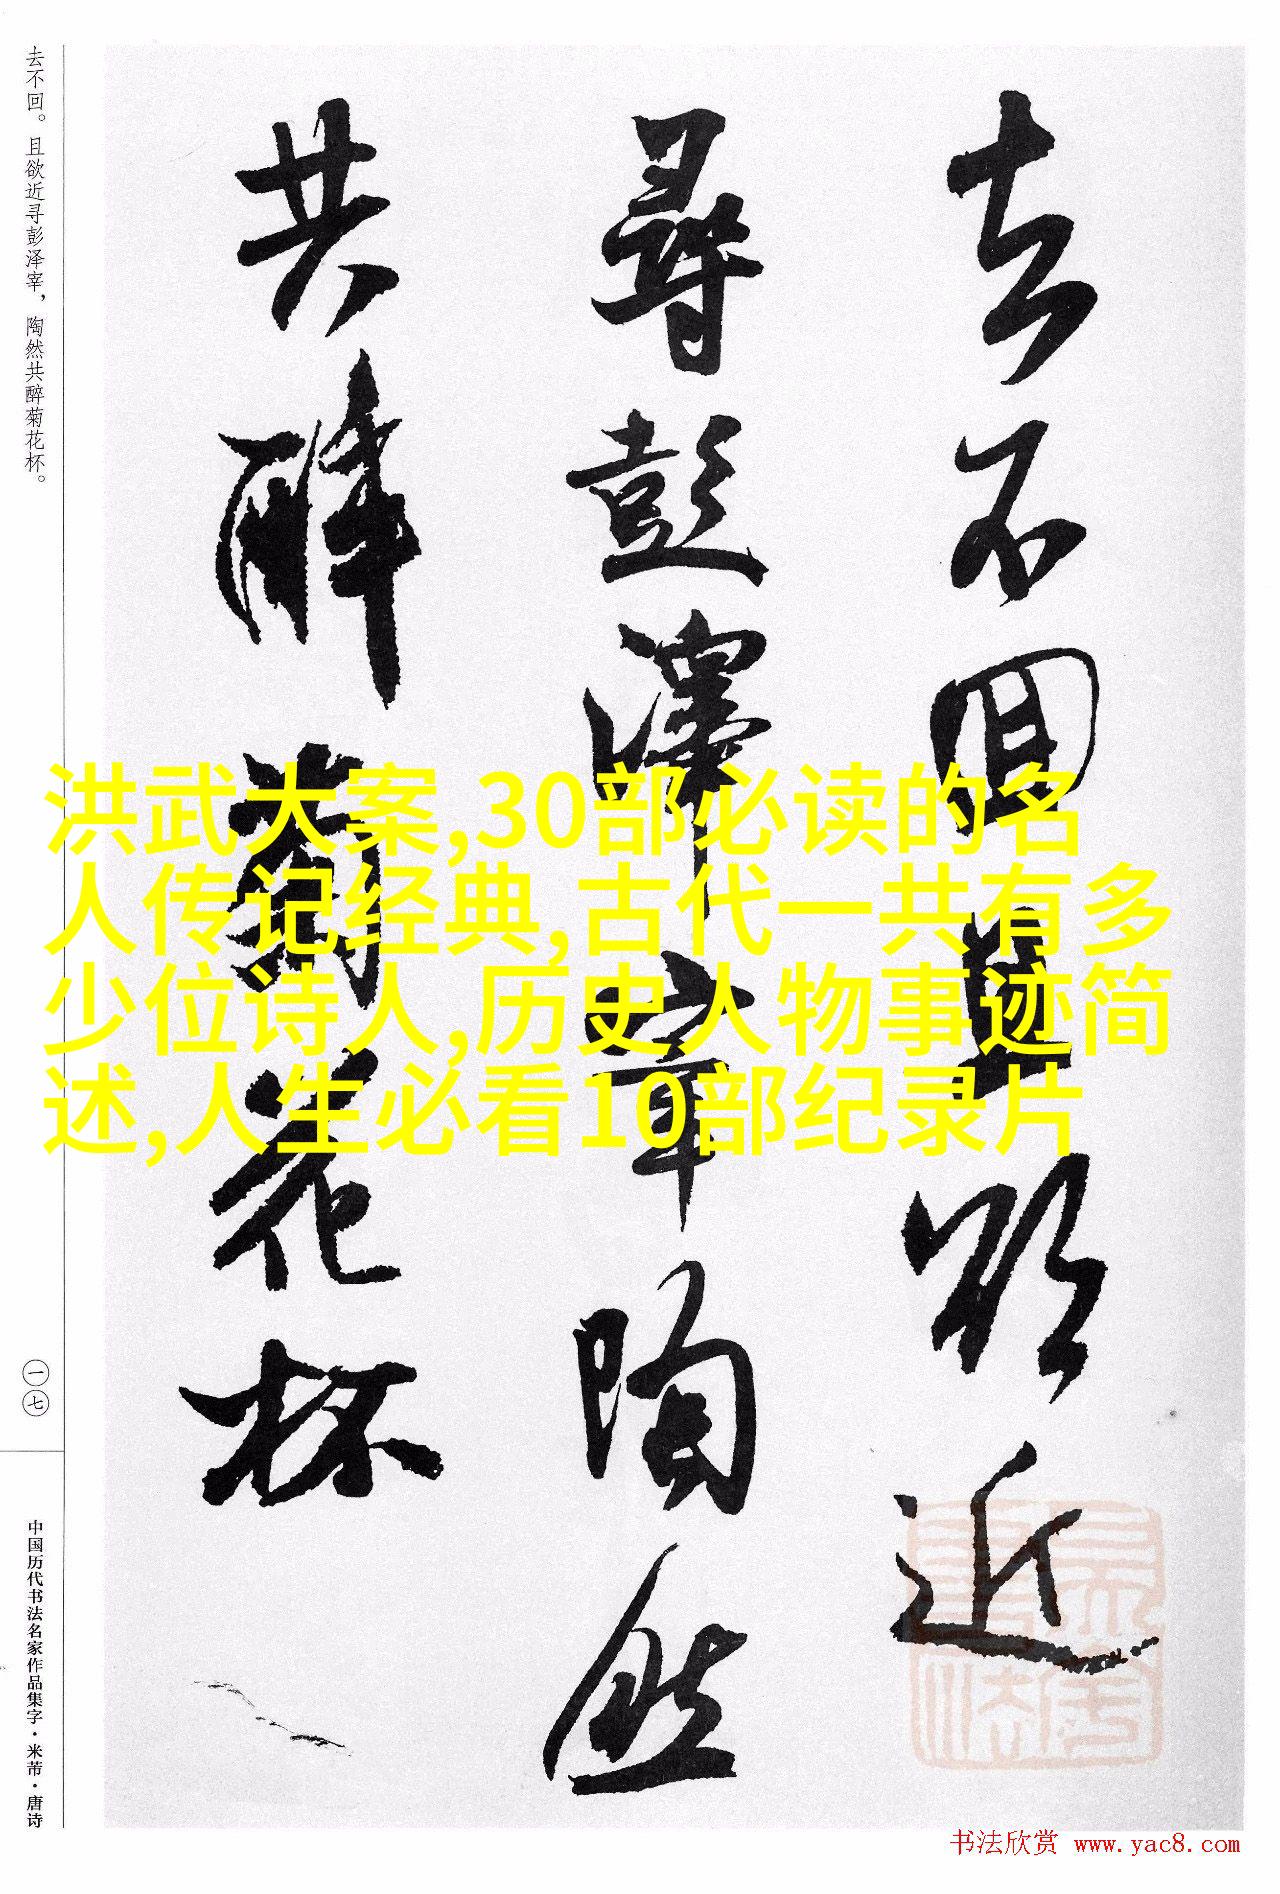 去不回且欲近
尋彭澤宰陶然
共醉菊花杯
去不回。且欲近寻彭泽宰，陶然共醉菊花杯。
一七
中国历代书法名家作品集字·米芾·唐诗
洪武大案,30部必读的名
人传记经典,古代一共有多
少位诗人,历史人物事迹简
述,人生必看10部纪录片
书法欣赏 www.yac8.com